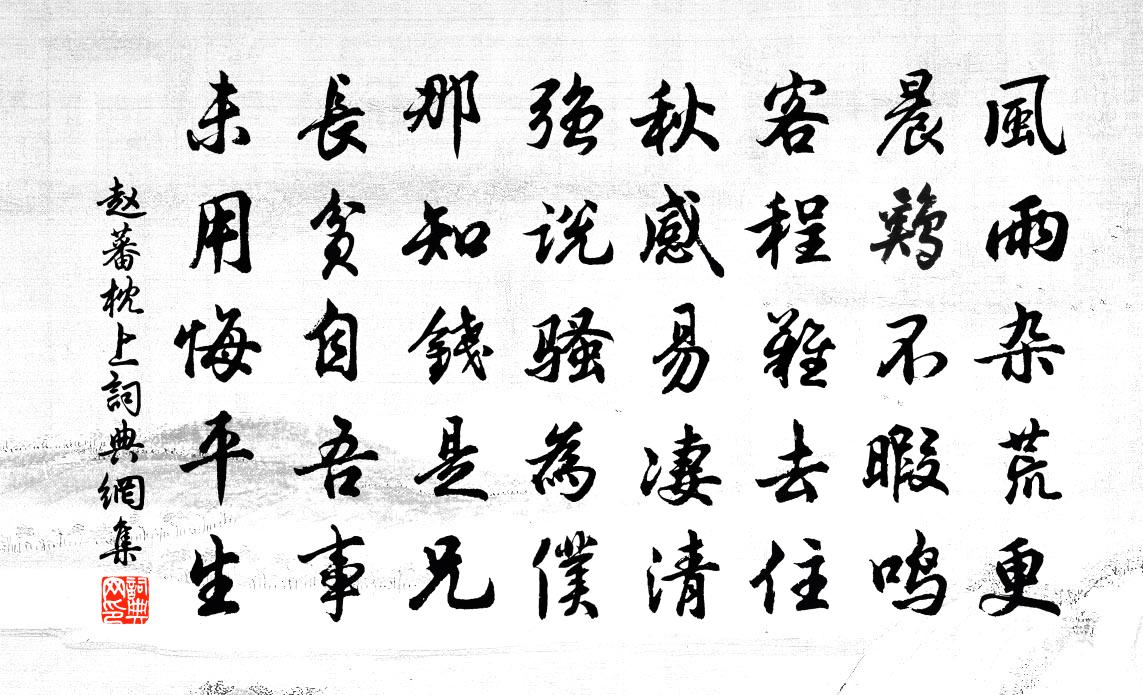 風雨杂荒更
晨鷄不暇鸣
客程難去住
秋感易凄清
强说骚為僕
那知錢是兄
長貧自吾事
未用悔平生
赵蕃枕上詞典網集
詞典网印